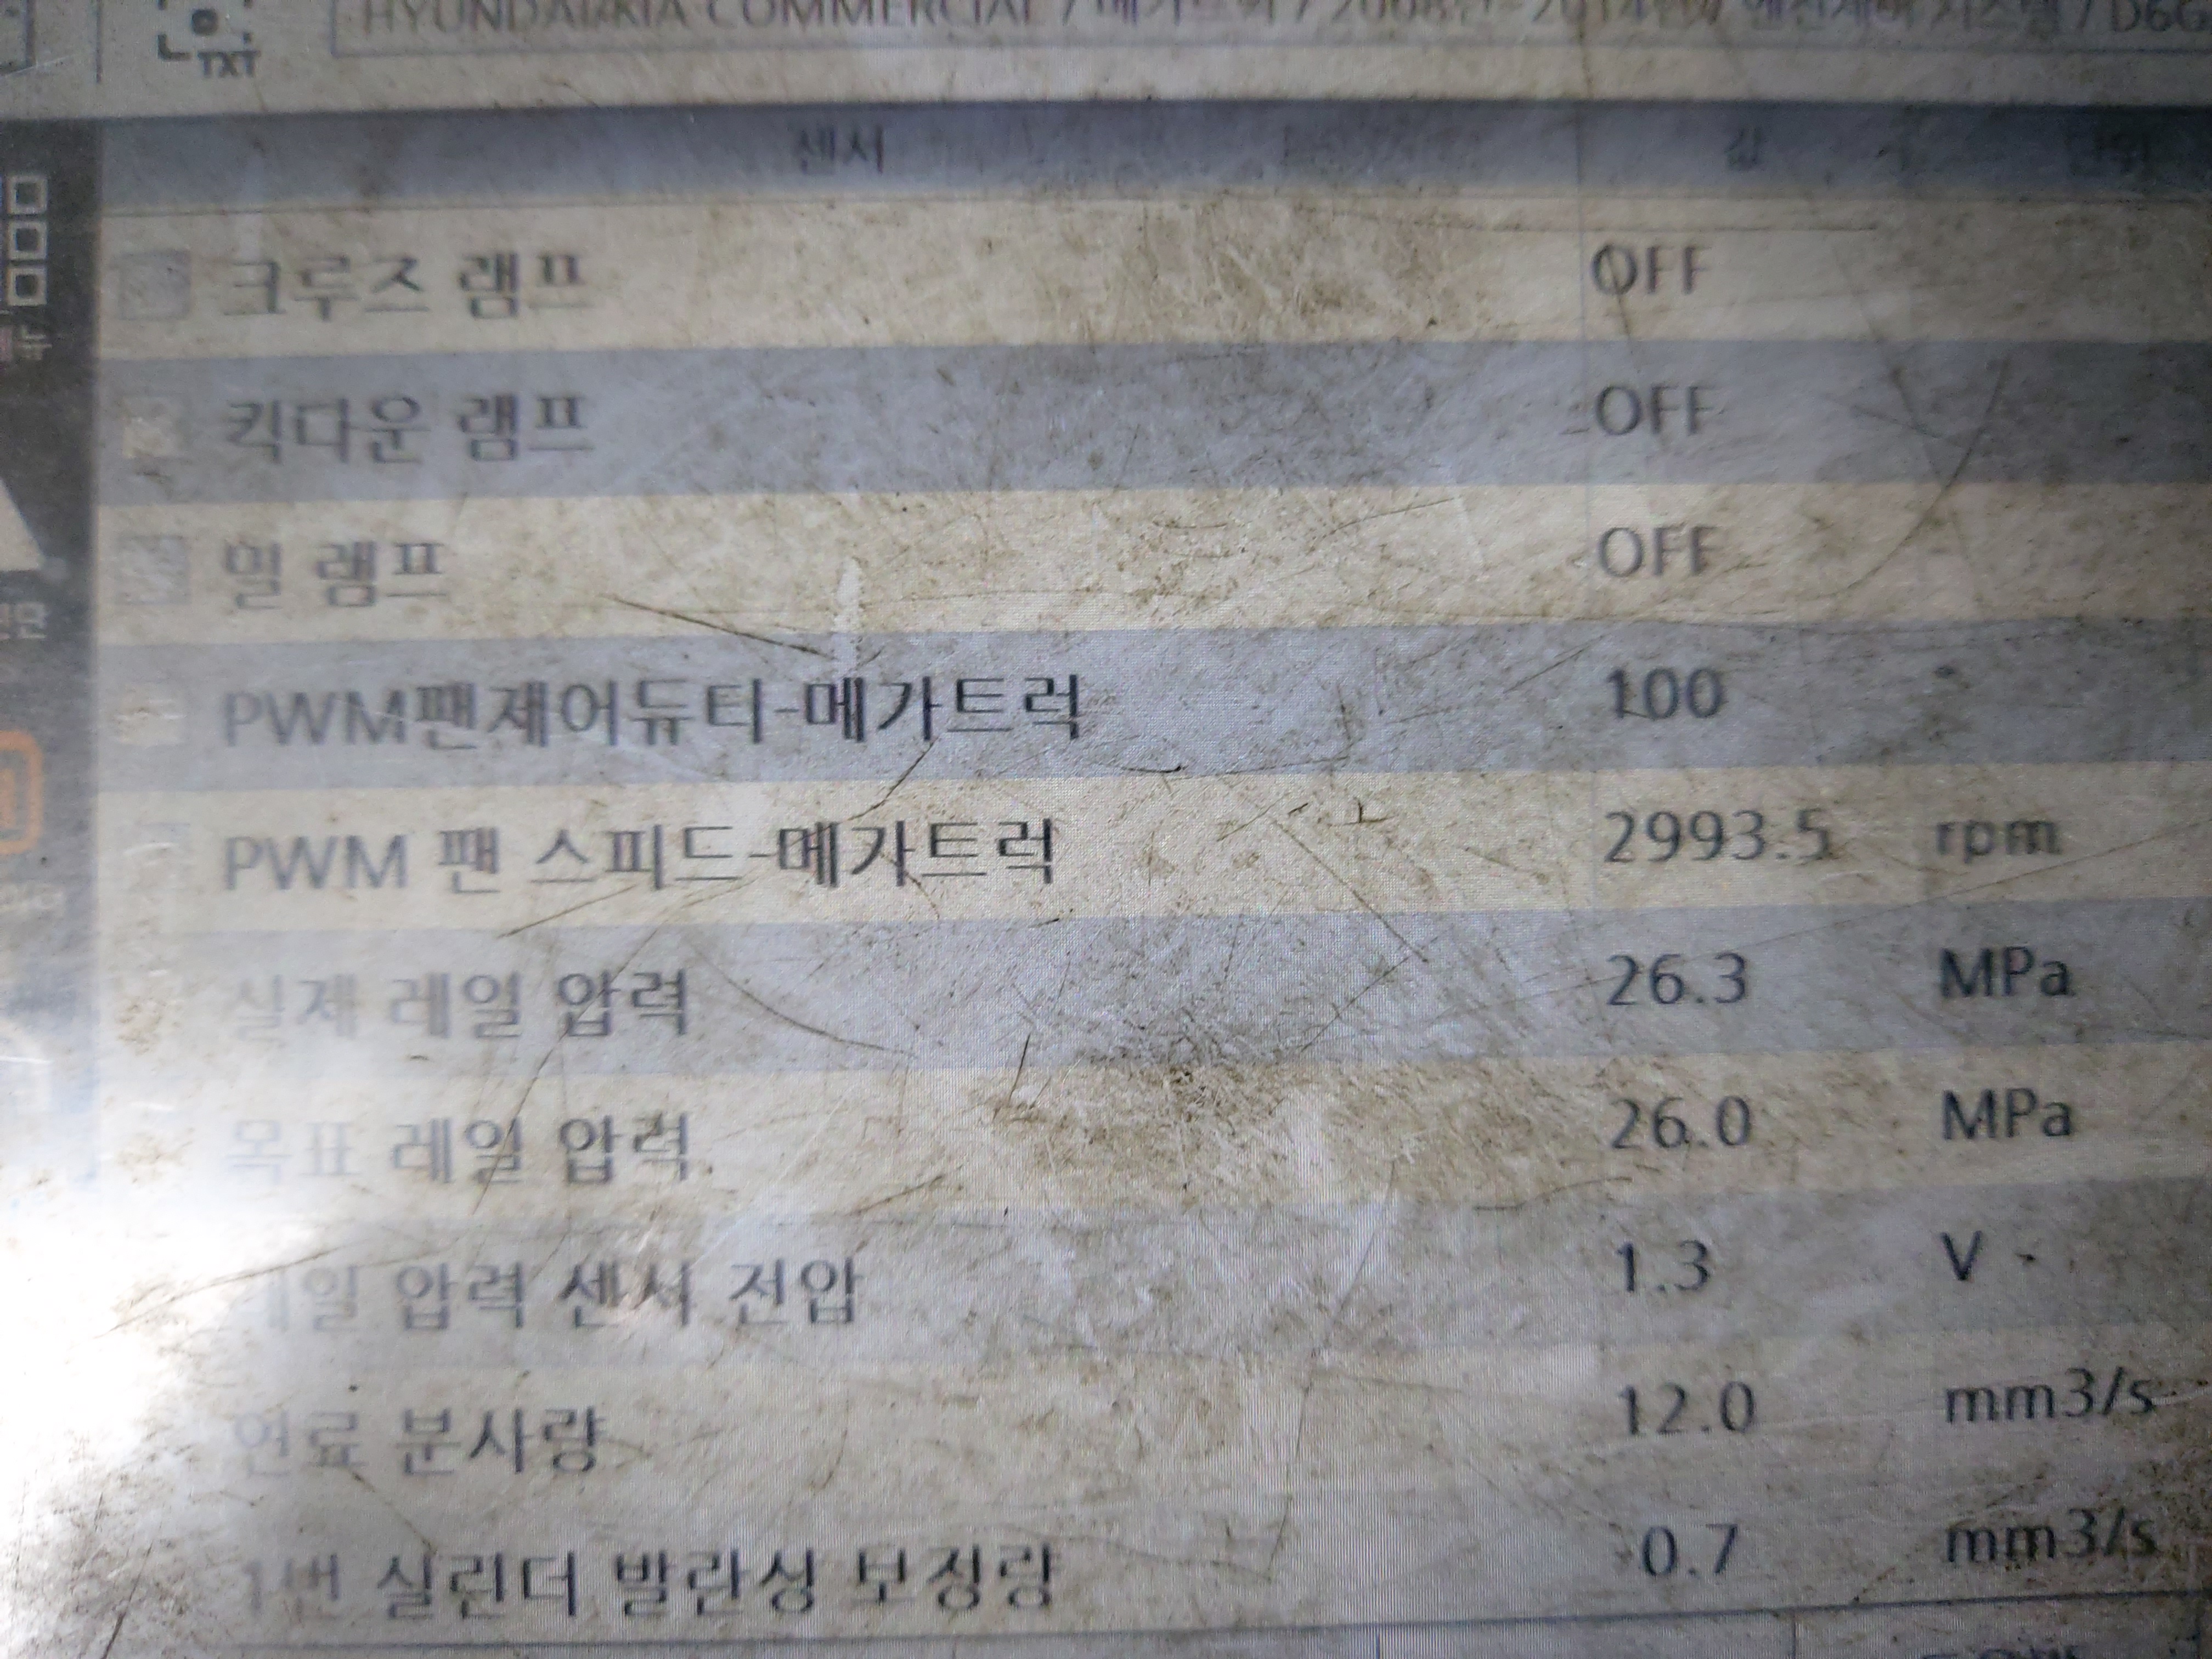 TXT
HYUNDAI/KIA COMMERCIAL / 메가트럭 / 2008년~2014년 / 엔진제어 시스템 / D6G
센서 값 단위
크루즈 램프 OFF
킥다운 램프 OFF
밀 램프 OFF
PWM팬제어듀티-메가트럭 100
PWM 팬 스피드-메가트럭 2993.5 rpm
실제 레일 압력 26.3 MPa
목표 레일 압력 26.0 MPa
레일 압력 센서 전압 1.3 V
연료 분사량 12.0 mm3/s
1번 실린더 발란싱 보정량 -0.7 mm3/s